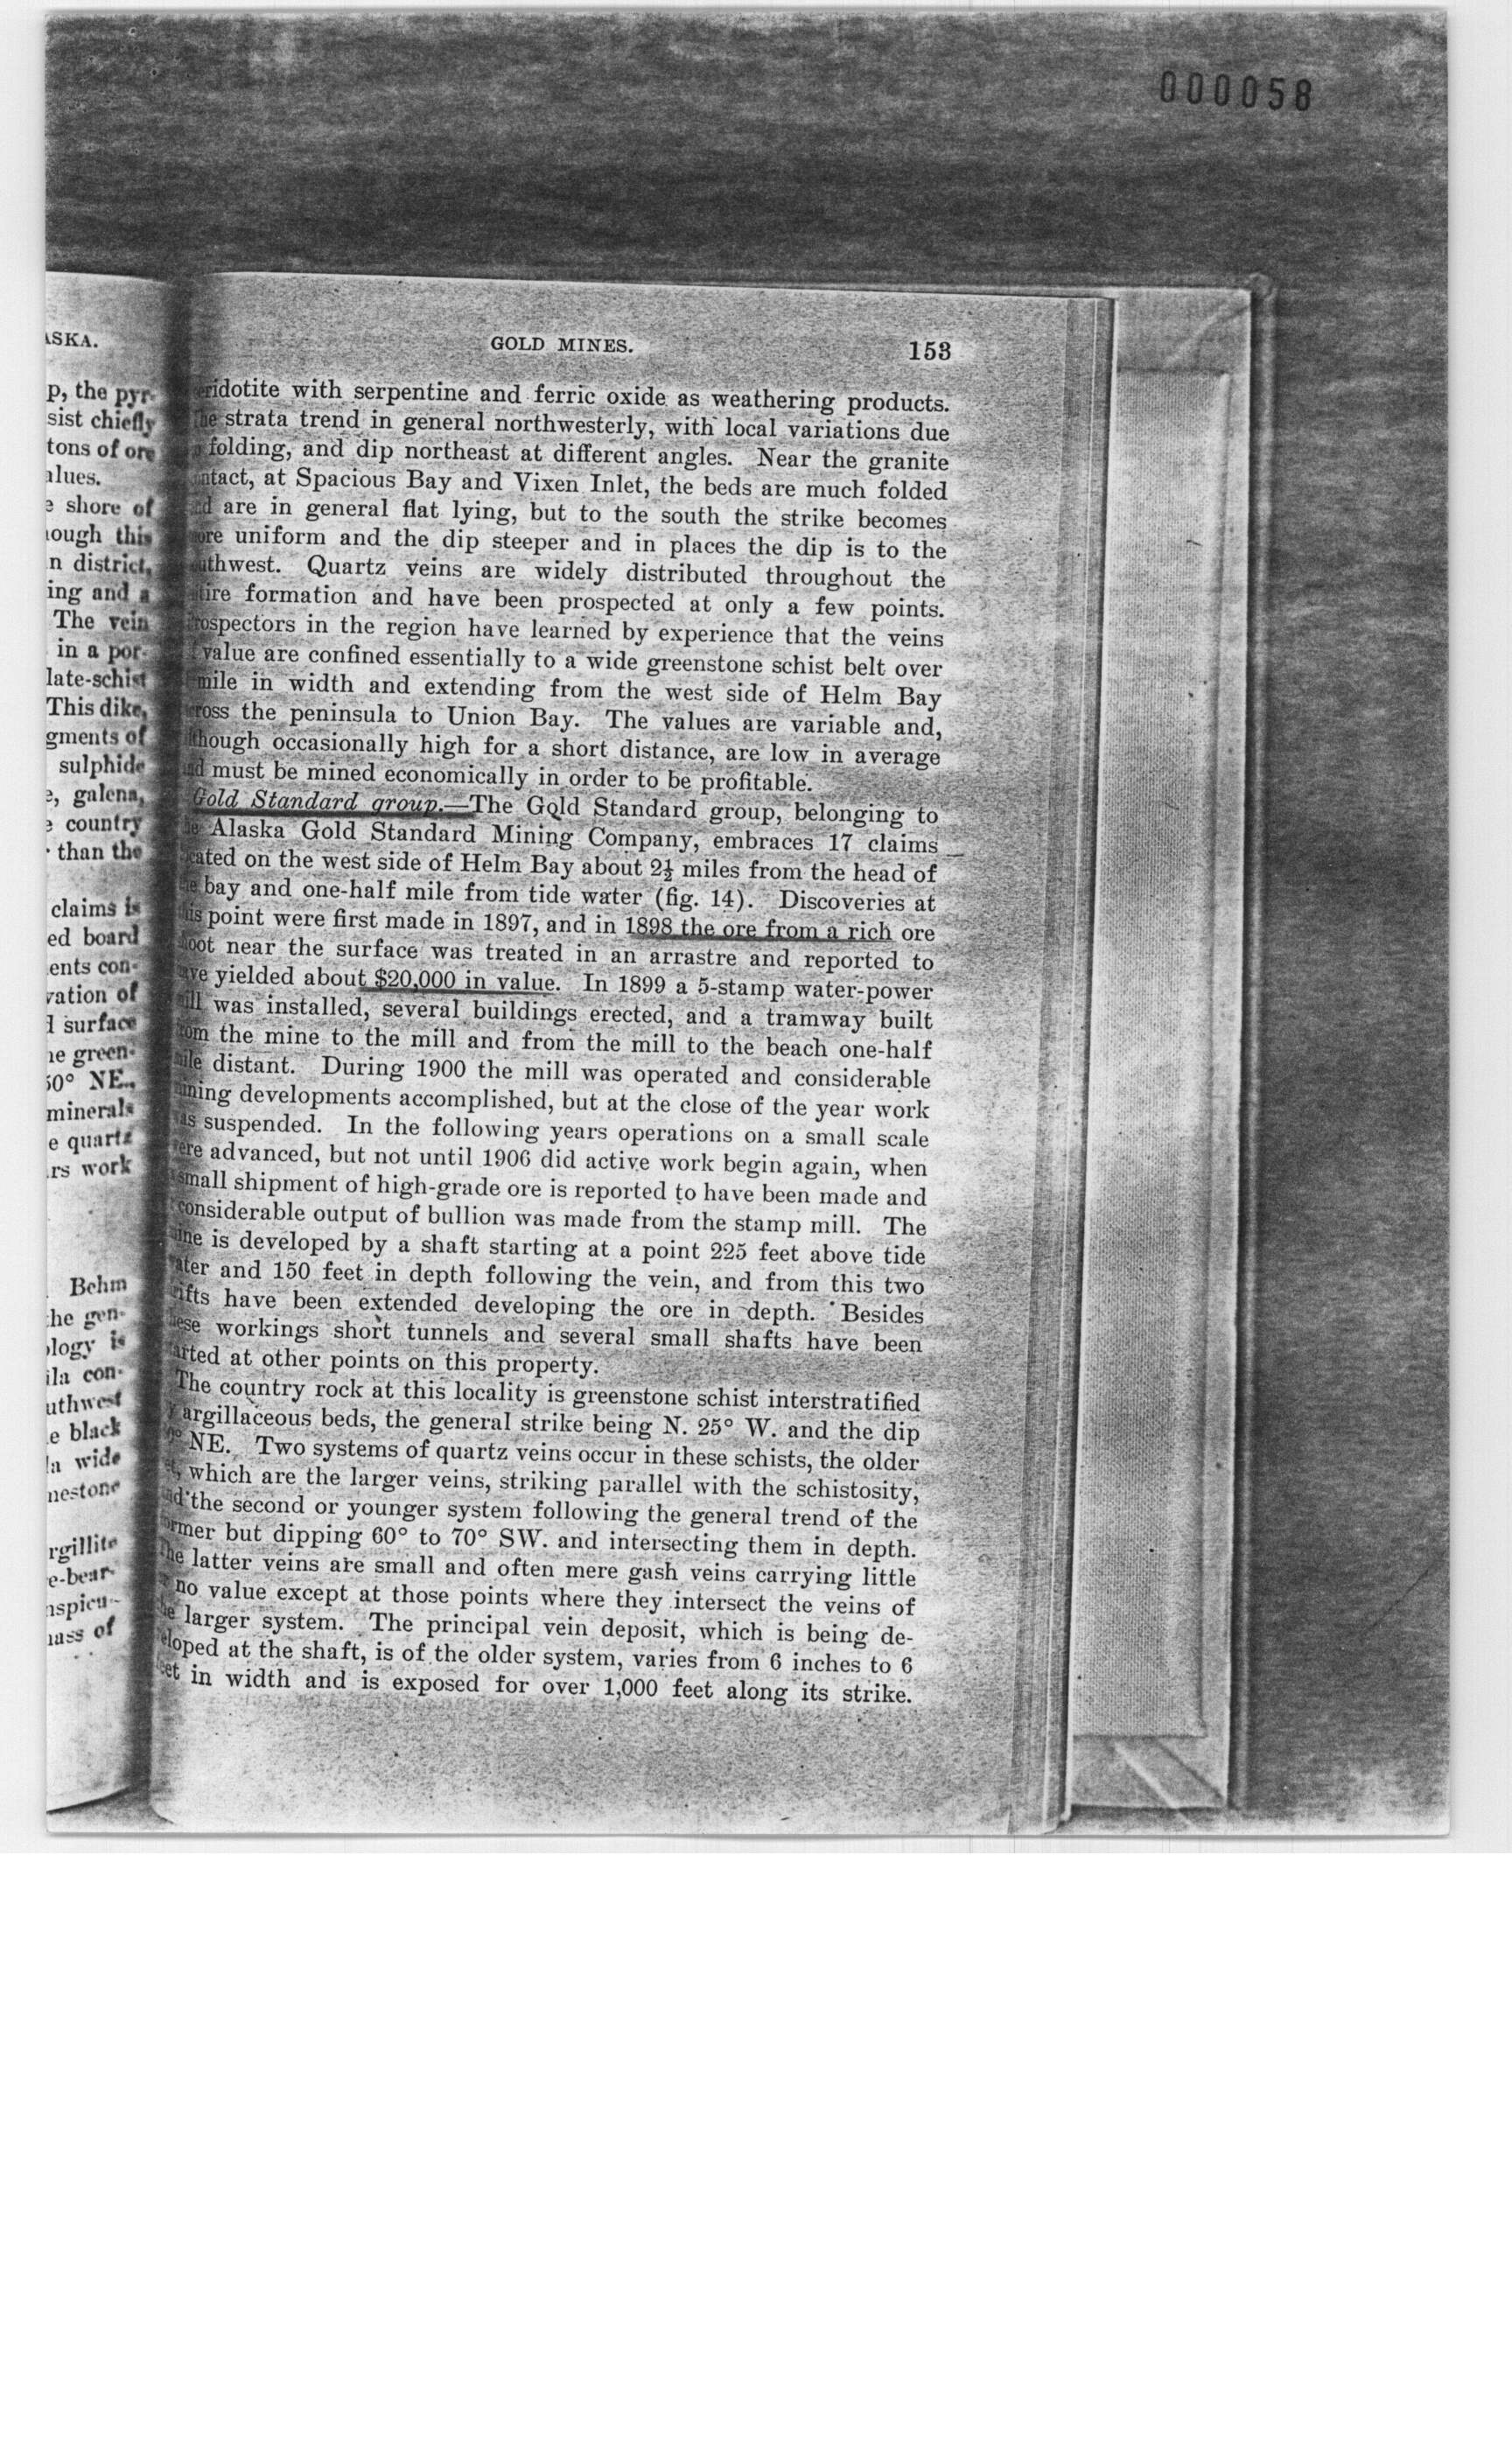 000058
ASKA.
p, the pyr-
sist chiefly
tons of ore
alues.
e shore of
ough this
n district,
ing and a
The vein
in a por-
late-schist
This dike,
gments of
sulphide
e, galena,
e country
than the
claims is
ed board
ents con-
vation of
d surface
ne green-
50° NE.,
minerals
e quartz
rs work
Behm
he gen-
ology is
ila con-
uthwest
e black
la wide
nestone
rgillite
e-bear-
nspicu-
nass of
GOLD MINES. 153
eridotite with serpentine and ferric oxide as weathering products.
The strata trend in general northwesterly, with local variations due
folding, and dip northeast at different angles. Near the granite
ntact, at Spacious Bay and Vixen Inlet, the beds are much folded
nd are in general flat lying, but to the south the strike becomes
ore uniform and the dip steeper and in places the dip is to the
uthwest. Quartz veins are widely distributed throughout the
tire formation and have been prospected at only a few points.
rospectors in the region have learned by experience that the veins
f value are confined essentially to a wide greenstone schist belt over
mile in width and extending from the west side of Helm Bay
cross the peninsula to Union Bay. The values are variable and,
though occasionally high for a short distance, are low in average
nd must be mined economically in order to be profitable.
Gold Standard group.—The Gold Standard group, belonging to
he Alaska Gold Standard Mining Company, embraces 17 claims
cated on the west side of Helm Bay about 2½ miles from the head of
he bay and one-half mile from tide water (fig. 14). Discoveries at
his point were first made in 1897, and in 1898 the ore from a rich ore
hoot near the surface was treated in an arrastre and reported to
ave yielded about $20,000 in value. In 1899 a 5-stamp water-power
ill was installed, several buildings erected, and a tramway built
om the mine to the mill and from the mill to the beach one-half
ile distant. During 1900 the mill was operated and considerable
ining developments accomplished, but at the close of the year work
as suspended. In the following years operations on a small scale
ere advanced, but not until 1906 did active work begin again, when
small shipment of high-grade ore is reported to have been made and
considerable output of bullion was made from the stamp mill. The
ine is developed by a shaft starting at a point 225 feet above tide
ater and 150 feet in depth following the vein, and from this two
rifts have been extended developing the ore in depth. Besides
hese workings short tunnels and several small shafts have been
arted at other points on this property.
The country rock at this locality is greenstone schist interstratified
y argillaceous beds, the general strike being N. 25° W. and the dip
0° NE. Two systems of quartz veins occur in these schists, the older
et, which are the larger veins, striking parallel with the schistosity,
nd the second or younger system following the general trend of the
ormer but dipping 60° to 70° SW. and intersecting them in depth.
The latter veins are small and often mere gash veins carrying little
r no value except at those points where they intersect the veins of
he larger system. The principal vein deposit, which is being de-
eloped at the shaft, is of the older system, varies from 6 inches to 6
eet in width and is exposed for over 1,000 feet along its strike.